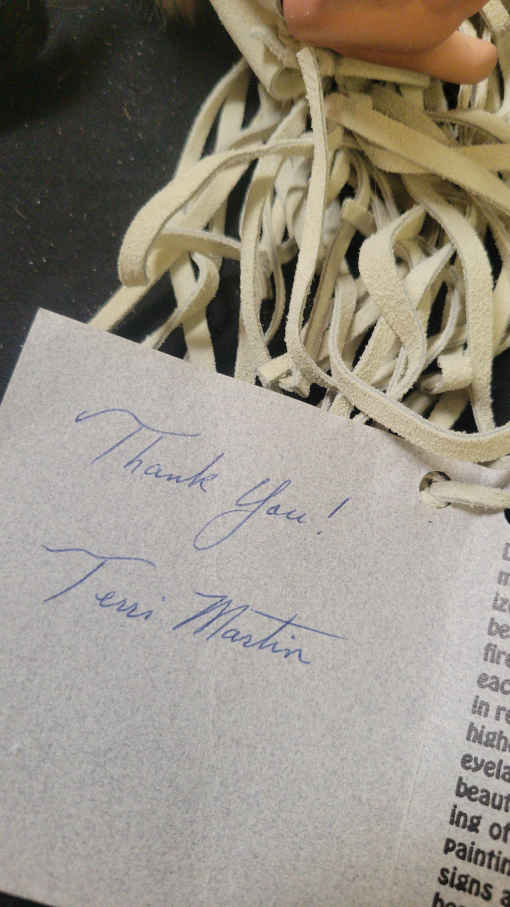 Thank You!
Terri Martin
be
fire
eac
in re
high
eyela
beaut
ing of
paintin
signs a